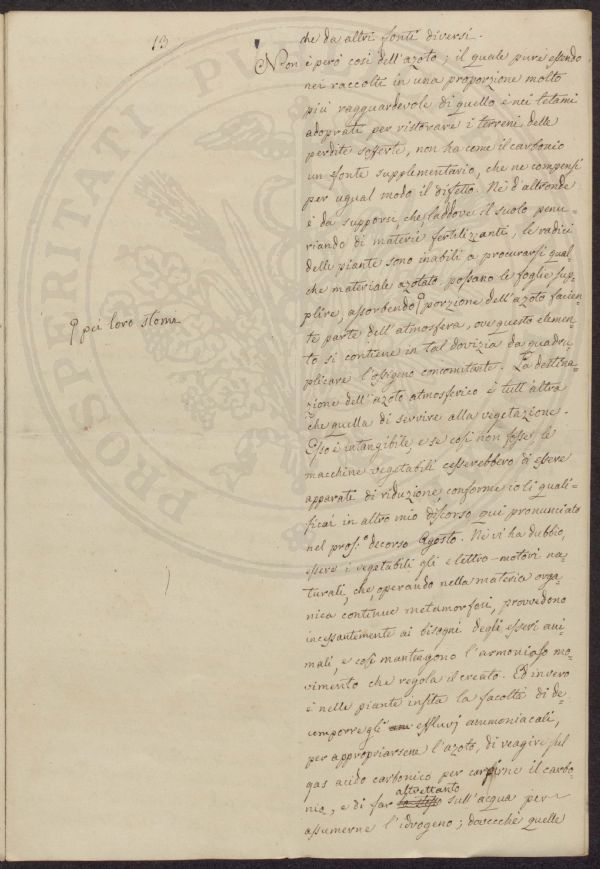 13
che da altri fonti diversi.
Non è però così dell'azoto; il quale pure essendo
nei raccolti in una proporzione molto
più ragguardevole di quello è nei letami
adoprati per ristorare i terreni delle
perdite sofferte, non ha come il carbonio
un fonte supplementario, che ne compensi
per ugual modo il difetto. Nè d'altronde
è da supporsi, che, laddove il suolo penu-
riando di materie fertilizzanti, le radici
delle piante sono inabili a procurarsi qual-
che materiale azotato, possano le foglie sup-
plire, assorbendo porzione dell'azoto facien-
te parte dell'atmosfera, ove questo elemen-
to si contiene in tal dovizia da quadru-
plicare l'ossigeno concomitante. La destina-
zione dell'azoto atmosferico è tutt'altra
che quella di servire alla vegetazione.
Esso è intangibile, e se così non fosse, le
macchine vegetabili cesserebbero di essere
apparati di riduzione, conforme io li quali-
ficai in altro mio discorso qui pronunciato
nel pross.° decorso Agosto. Nè vi ha dubbio,
essere i vegetabili gli elettro-motori na-
turali, che, operando nella materia orga-
nica continue metamorfosi, provvedono
incessantemente ai bisogni degli esseri ani-
mali, e così mantengono l'armonioso mo-
vimento che regola il creato. Ed invero
è nelle piante insita la facoltà di de-
comporre gli effluvj ammoniacali,
per appropriarsene l'azoto, di reagire sul
gas acido carbonico per carpirne il carbo-
nio, e di far altrettanto sull'acqua per
assumerne l'idrogeno; dovecchè quelle
pei loro stomi
PROSPERITATI PUBL